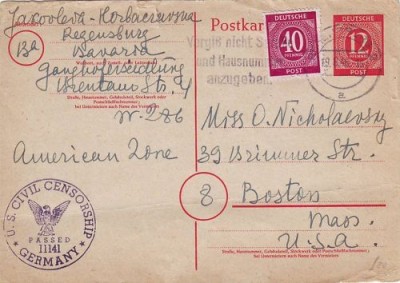 Jakovleva-Korbaczewska
Regensburg
13a
Bavaria
Ganghofersiedlung
Brentano Str. 4
W-286
American Zone
Postkarte
Vergiß nicht S
und Hausnum
anzugeben.
DEUTSCHE
40
PFENNIG
POST
DEUTSCHE
12
PFENNIG
POST
a
Miss O. Nicholaevsky
39 Brimmer Str.
8 Boston
Mass.
U.S.A.
Straße, Hausnummer, Gebäudeteil, Stockwerk oder
Postschließfachnummer;
bei Untermietern auch Name des Vermieters
Straße, Hausnummer, Gebäudeteil, Stockwerk oder Postschließfachnummer;
bei Untermietern auch Name des Vermieters
U.S. CIVIL CENSORSHIP
PASSED
11141
GERMANY